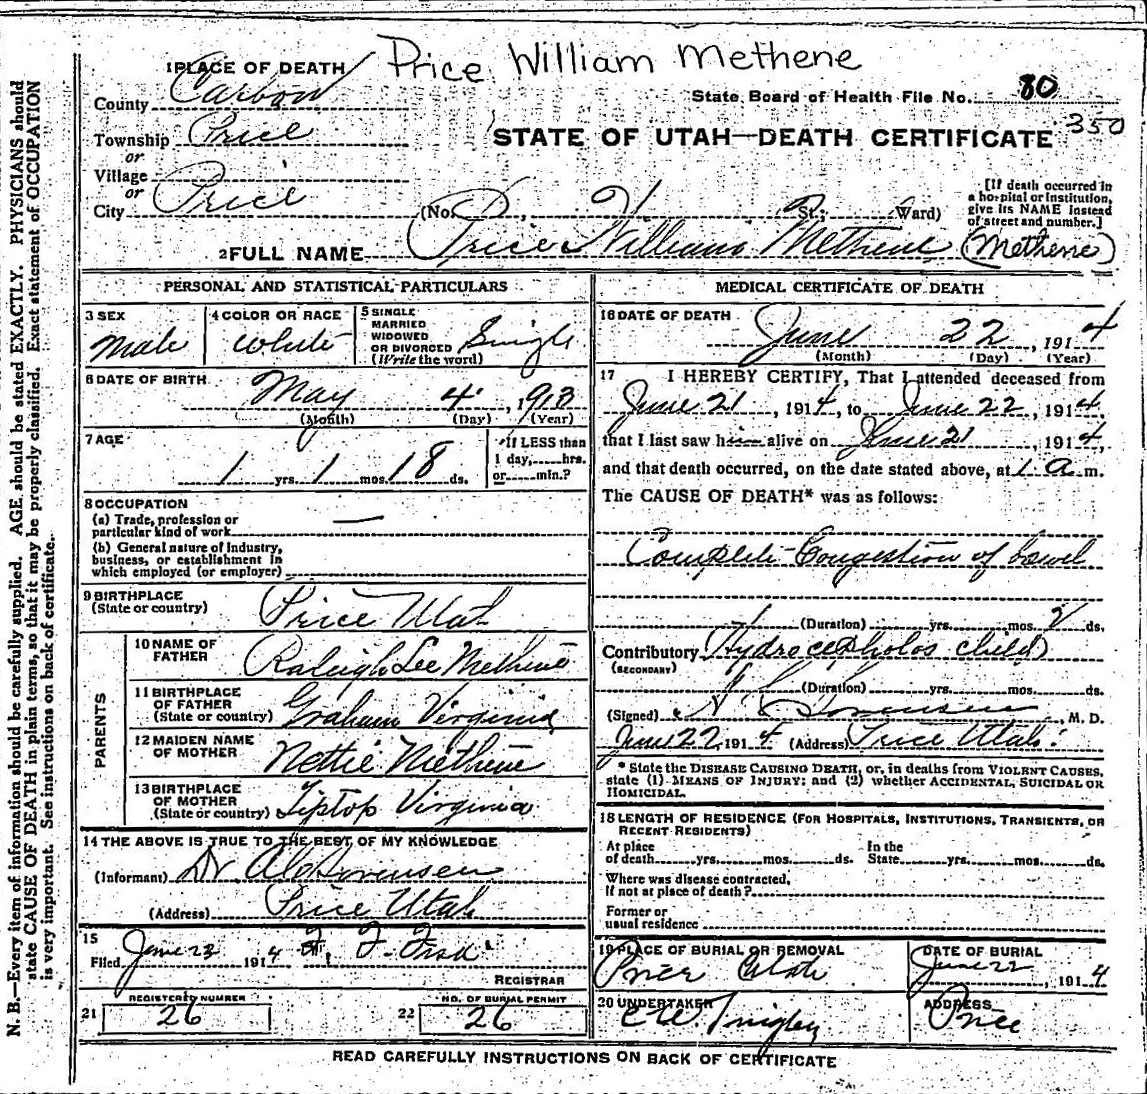 Price William Methene
1 PLACE OF DEATH
County Carbon
State Board of Health File No. 80
350
Township Price
STATE OF UTAH—DEATH CERTIFICATE
or
Village
or
City Price
(No. , St.; Ward)
[If death occurred in
a hospital or institution,
give its NAME instead
of street and number.]
2 FULL NAME Price William Methene (Methene)
PERSONAL AND STATISTICAL PARTICULARS
3 SEX
Male
4 COLOR OR RACE
White
5 SINGLE
MARRIED
WIDOWED
OR DIVORCED
(Write the word)
Single
6 DATE OF BIRTH
May 4, 1913
(Month) (Day) (Year)
7 AGE
1 yrs. 1 mos. 18 ds.
If LESS than
1 day, hrs.
or min.?
8 OCCUPATION
(a) Trade, profession or
particular kind of work —
(b) General nature of industry,
business, or establishment in
which employed (or employer)
9 BIRTHPLACE
(State or country)
Price Utah
PARENTS
10 NAME OF
FATHER
Raleigh Lee Methene
11 BIRTHPLACE
OF FATHER
(State or country)
Graham Virginia
12 MAIDEN NAME
OF MOTHER
Nettie Methene
13 BIRTHPLACE
OF MOTHER
(State or country)
Tiptop Virginia
14 THE ABOVE IS TRUE TO THE BEST OF MY KNOWLEDGE
(Informant) Dr Sorensen
(Address) Price Utah
15
Filed June 23 1914
REGISTRAR
REGISTERED NUMBER
21 26
NO. OF BURIAL PERMIT
22 26
MEDICAL CERTIFICATE OF DEATH
16 DATE OF DEATH
June 22, 1914
(Month) (Day) (Year)
17 I HEREBY CERTIFY, That I attended deceased from
June 21, 1914, to June 22, 1914,
that I last saw him alive on June 21, 1914,
and that death occurred, on the date stated above, at 1 a m.
The CAUSE OF DEATH* was as follows:
Complete Congestion of bowel
(Duration) yrs. mos. 2 ds.
Contributory Hydrocepholos child
(SECONDARY)
(Duration) yrs. mos. ds.
(Signed) Sorensen, M. D.
June 22, 1914 (Address) Price Utah
* State the DISEASE CAUSING DEATH, or, in deaths from VIOLENT CAUSES,
state (1) MEANS OF INJURY; and (2) whether ACCIDENTAL, SUICIDAL OR
HOMICIDAL.
18 LENGTH OF RESIDENCE (FOR HOSPITALS, INSTITUTIONS, TRANSIENTS, OR
RECENT RESIDENTS)
At place
of death yrs. mos. ds.
In the
State yrs. mos. ds.
Where was disease contracted,
if not at place of death?
Former or
usual residence
19 PLACE OF BURIAL OR REMOVAL
Price Utah
DATE OF BURIAL
June 22, 1914
20 UNDERTAKER
ADDRESS
Price
READ CAREFULLY INSTRUCTIONS ON BACK OF CERTIFICATE
N. B.—Every item of information should be carefully supplied. AGE should be stated EXACTLY. PHYSICIANS should
state CAUSE OF DEATH in plain terms, so that it may be properly classified. Exact statement of OCCUPATION
is very important. See instructions on back of certificate.